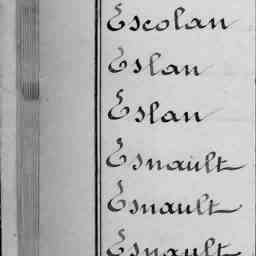 Escolan
Eslan
Eslan
Esnault
Esnault
Esnault